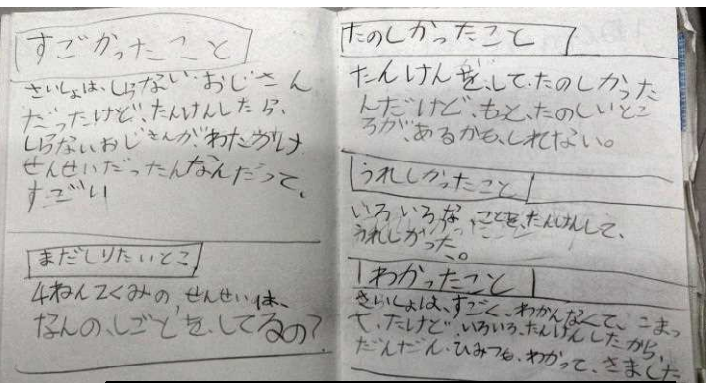 すごかったこと
さいしょは、しらないおじさん
だったけど、たんけんしたら、
しらないおじさんが、わた
せんせいだったんなんだって、
すごい
まだしりたいとこ
4ねん2くみの せんせいは、
なんの、しごとを、してるの?
たのしかったこと
たんけんを、して、たのしかった
んだけど、もと、たのしいとこ
ろが、あるかも、しれない。
うれしかったこと
いろいろな ことを、たんけんして、
うれしかった。
わかったこと
さいしょは、すごく、わかんなくて、こまっ
て、たけど、いろいろ、たんけんしたから、
だんだん、ひみつも、わかって、きました